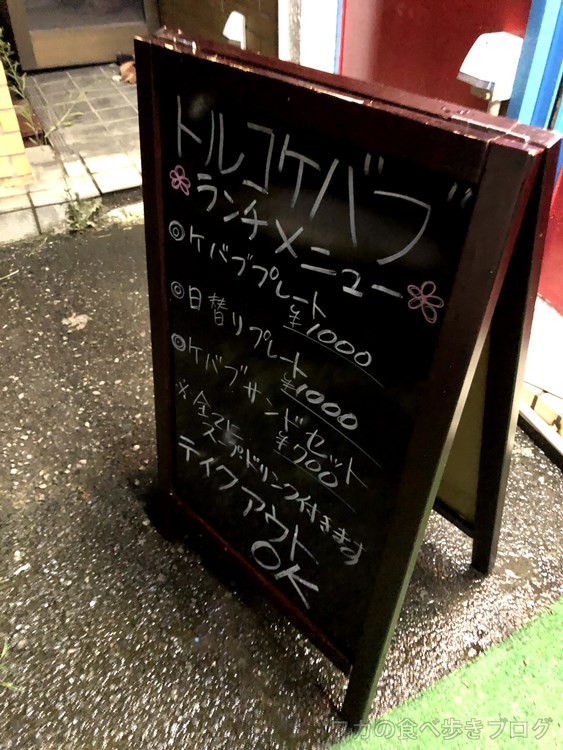 トルコケバブ
ランチメニュー
◎ケバブプレート
¥1000
◎日替りプレート
¥1000
◎ケバブサンドセット
¥700
※全てに
スープドリンク付きます
テイクアウト
OK
ワカの食べ歩きブログ